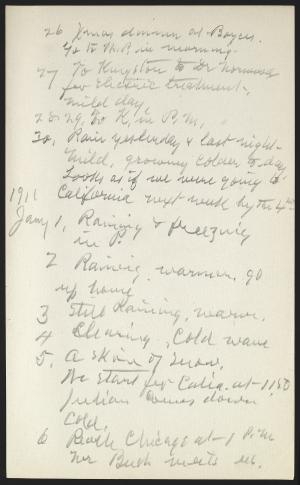 26 Xmas dinner at Boyces.
Go to N.P. in morning.
27 To Kingston to Dr Norwood
for Electric treatment,
mild day
28-29, To K, in P.M,
30, Rain yesterday & last night-
Mild, growing colder to day
Looks as if we were going to
California next week by the 4th
1911
Jany 1, Raining & freezing
in P.
2 Raining, warmer, go
up home
3 Still Raining, warm.
4 Clearing, Cold wave
5. A skim of snow,
We start for Calia. at 11 50
Julian comes down
Cold.
6 Reach Chicago at 1 P.M
Mr Bush meets us.